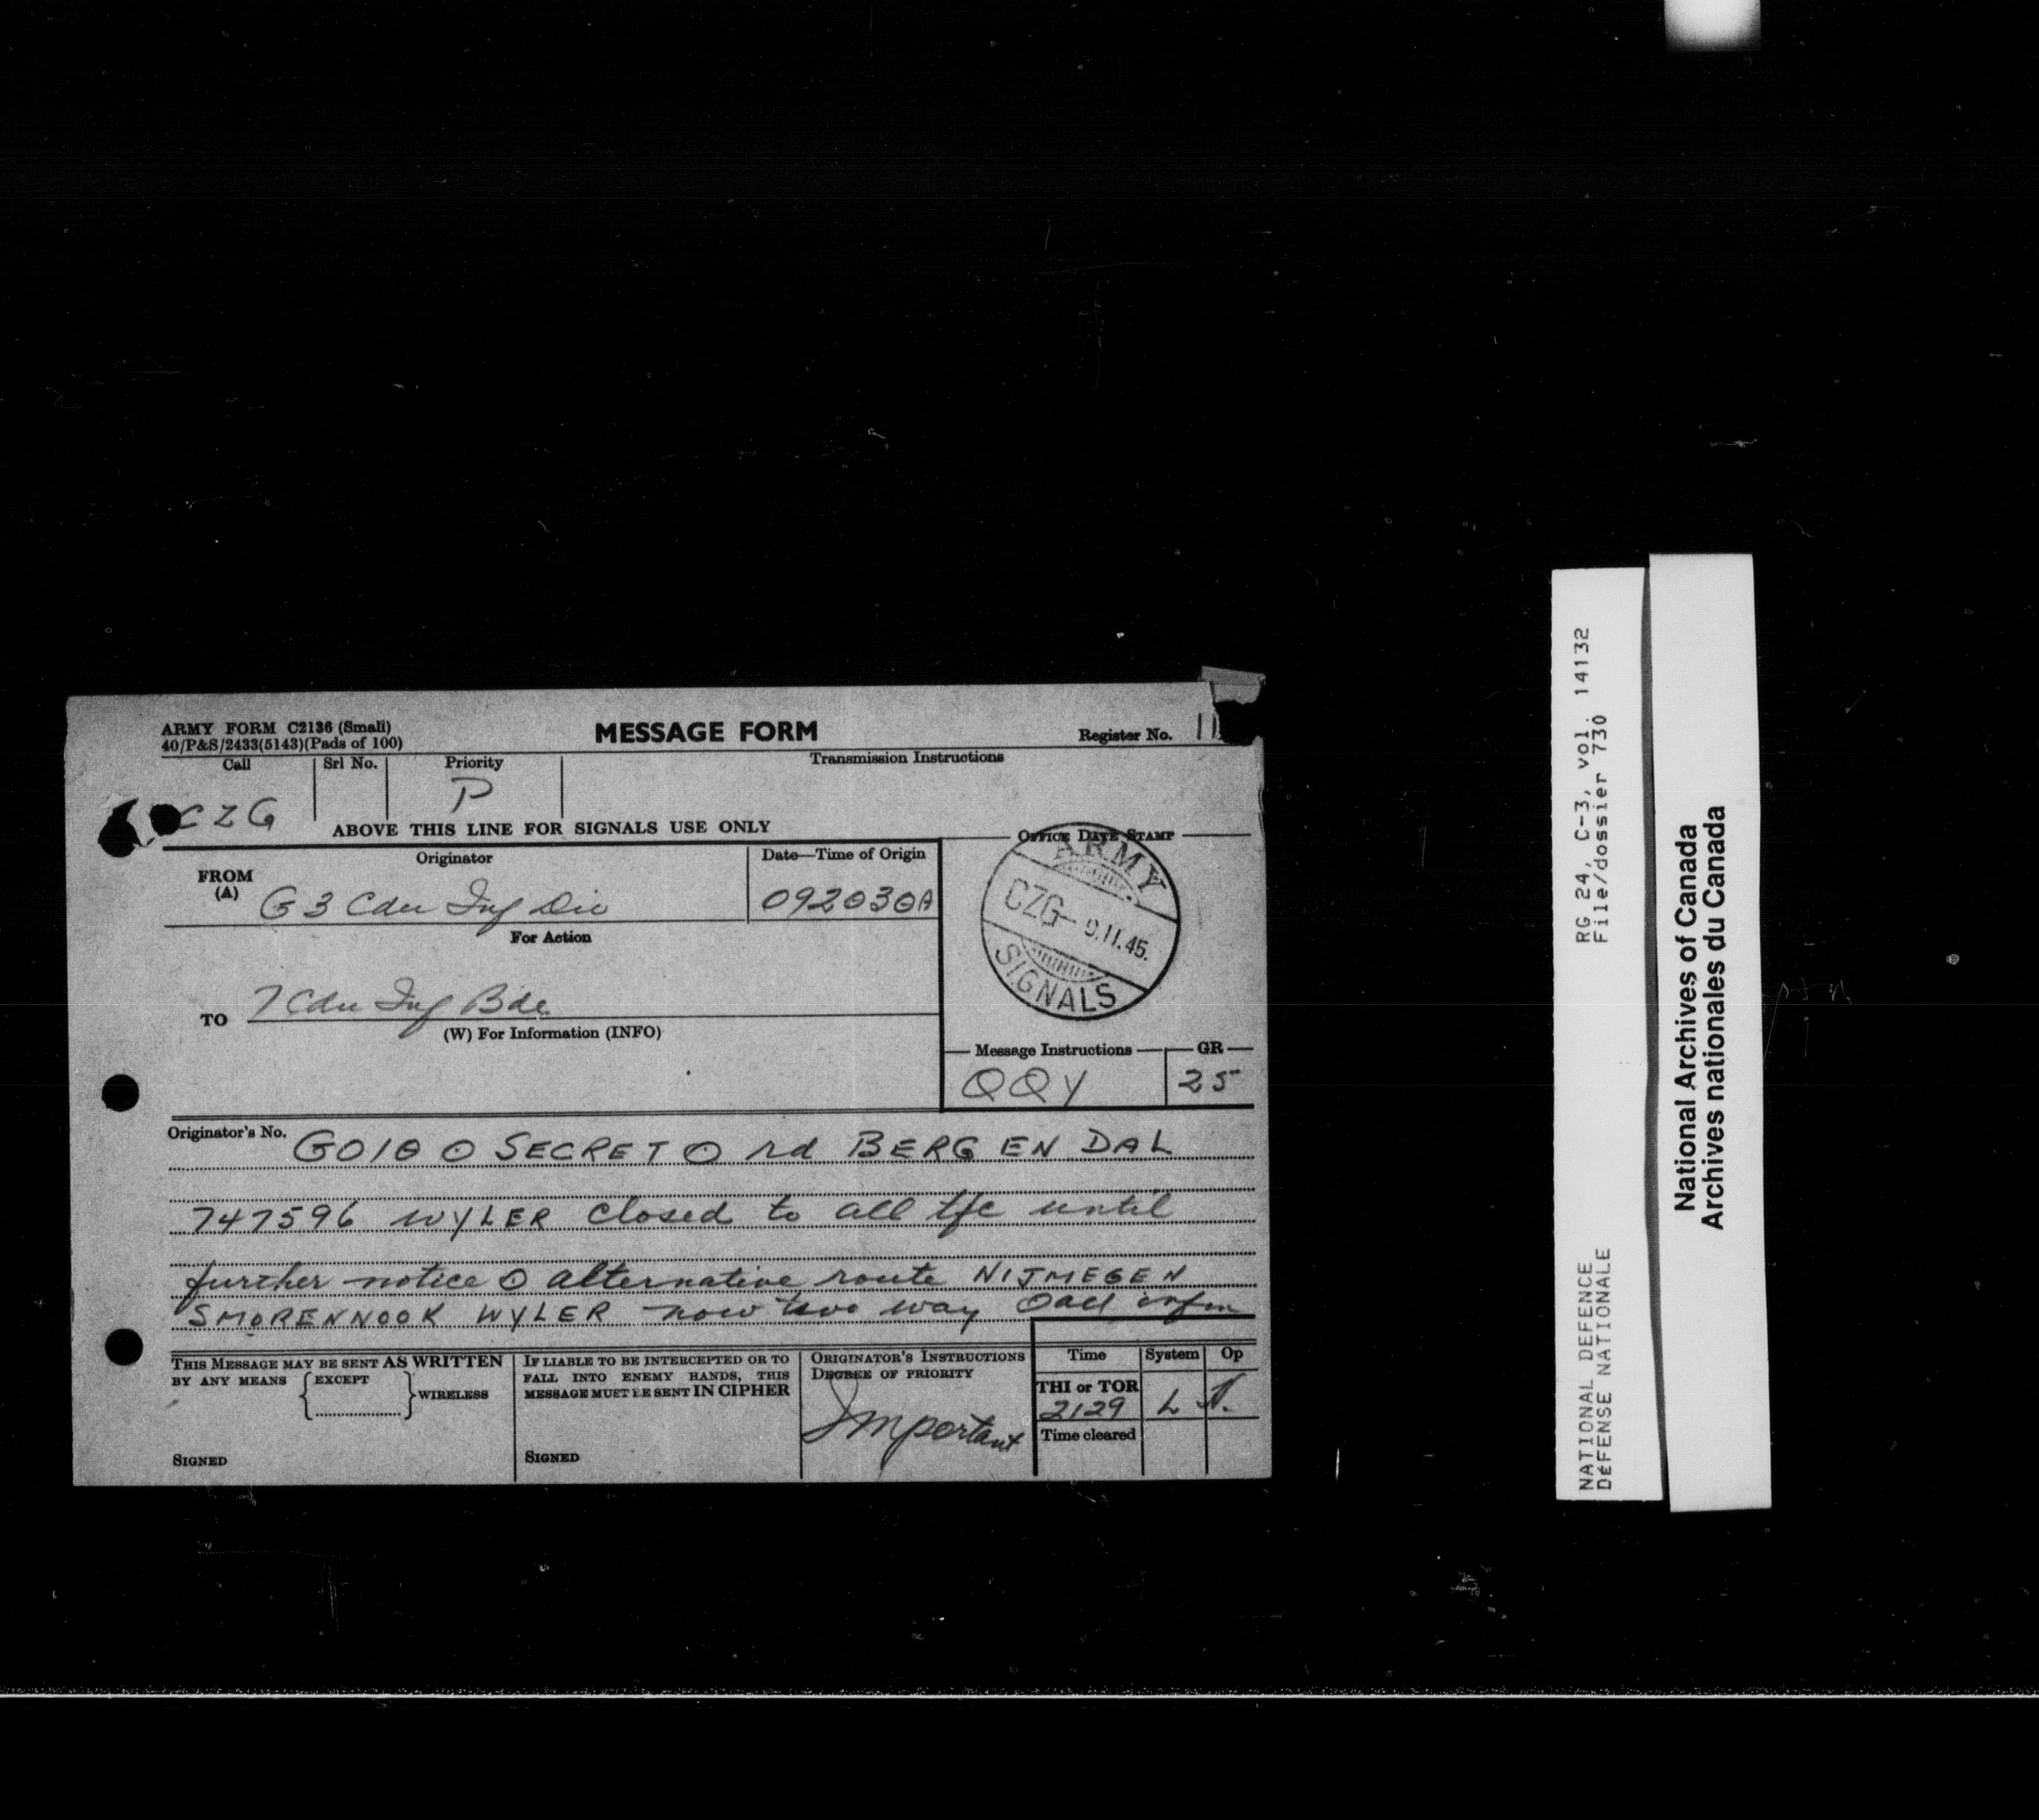 ARMY FORM C2136 (Small)
40/P&S/2433(5143)(Pads of 100)
MESSAGE FORM
Register No. 11
Call
Srl No.
Priority
Transmission Instructions
CZG
P
ABOVE THIS LINE FOR SIGNALS USE ONLY
OFFICE DATE STAMP
Originator
Date—Time of Origin
FROM
(A)
G 3 Cdn Inf Div
092030A
ARMY
CZG
9.11.45.
SIGNALS
For Action
TO
7 Cdn Inf Bde
(W) For Information (INFO)
Message Instructions
GR
QQY
25
Originator's No.
GO10 O SECRET O rd BERG EN DAL
747596 WYLER closed to all tfc until
further notice O alternative route NIJMEGEN
SMORENNOOK WYLER now two way O all infm
THIS MESSAGE MAY BE SENT AS WRITTEN
BY ANY MEANS
EXCEPT
WIRELESS
SIGNED
IF LIABLE TO BE INTERCEPTED OR TO
FALL INTO ENEMY HANDS, THIS
MESSAGE MUST BE SENT IN CIPHER
SIGNED
ORIGINATOR'S INSTRUCTIONS
DEGREE OF PRIORITY
Important
Time
System
Op
THI or TOR
2129
L
Time cleared
RG 24, C-3, vol. 14132
File/dossier 730
NATIONAL DEFENCE
DÉFENSE NATIONALE
National Archives of Canada
Archives nationales du Canada